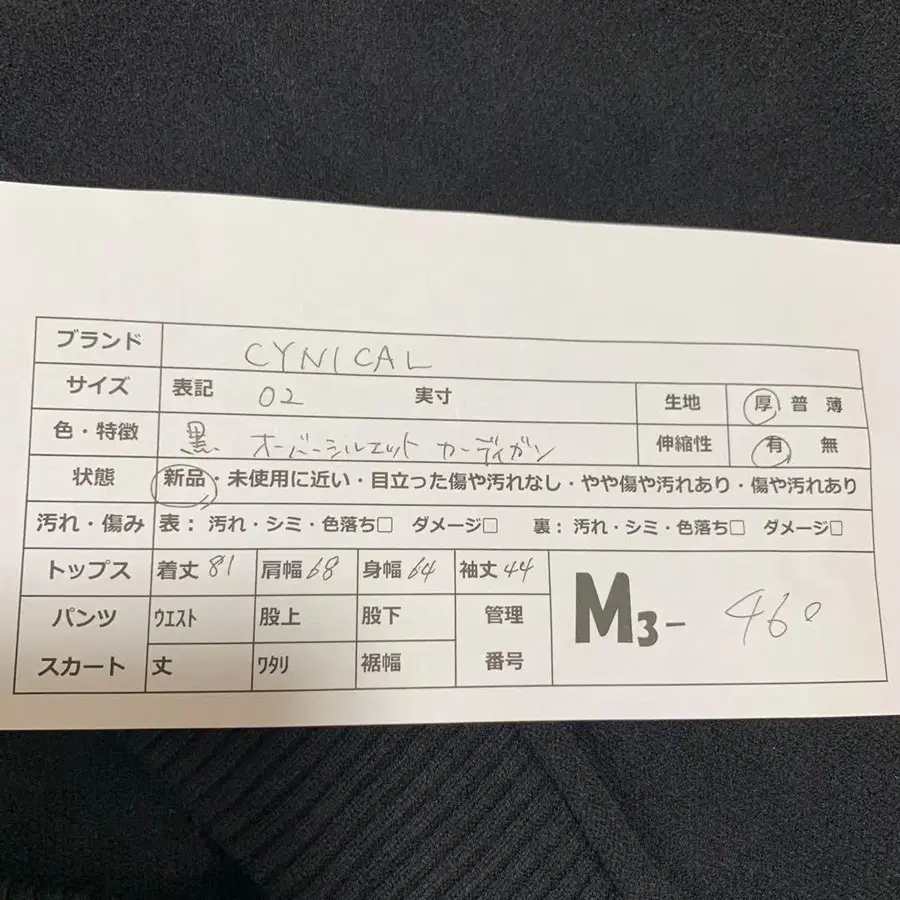 ブランド CYNICAL
サイズ 表記 02 実寸 生地 厚 普 薄
色・特徴 黒 オーバーシルエット カーディガン 伸縮性 有 無
状態 新品・未使用に近い・目立った傷や汚れなし・やや傷や汚れあり・傷や汚れあり
汚れ・傷み 表： 汚れ・シミ・色落ち□ ダメージ□ 裏： 汚れ・シミ・色落ち□ ダメージ□
トップス 着丈 81 肩幅 68 身幅 64 袖丈 44
パンツ ウエスト 股上 股下 管理 M3- 460
スカート 丈 ワタリ 裾幅 番号